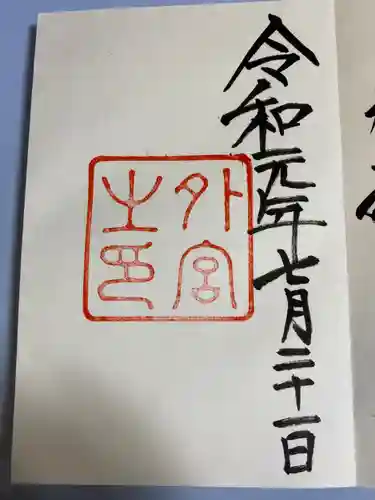 令和元年七月二十一日
外宮
之印